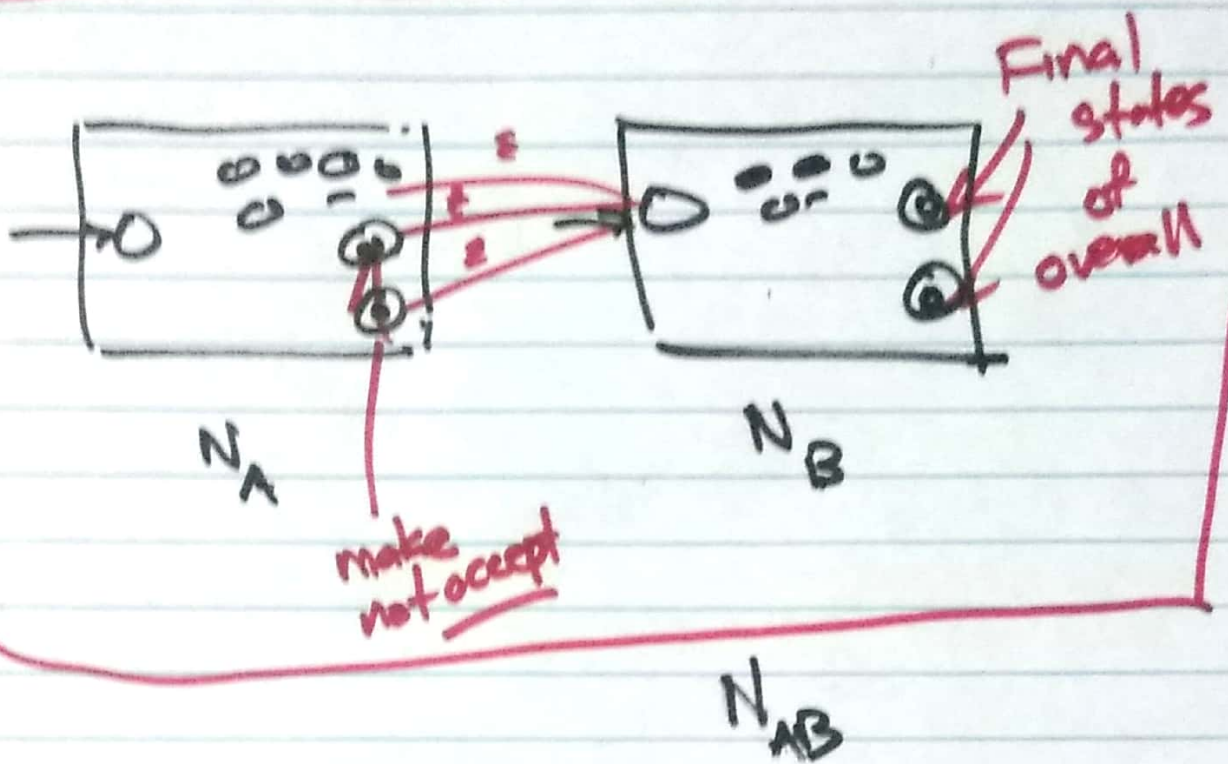 Final
states
of
overall
ε
ε
ε
N_A
N_B
make
not accept
N_AB